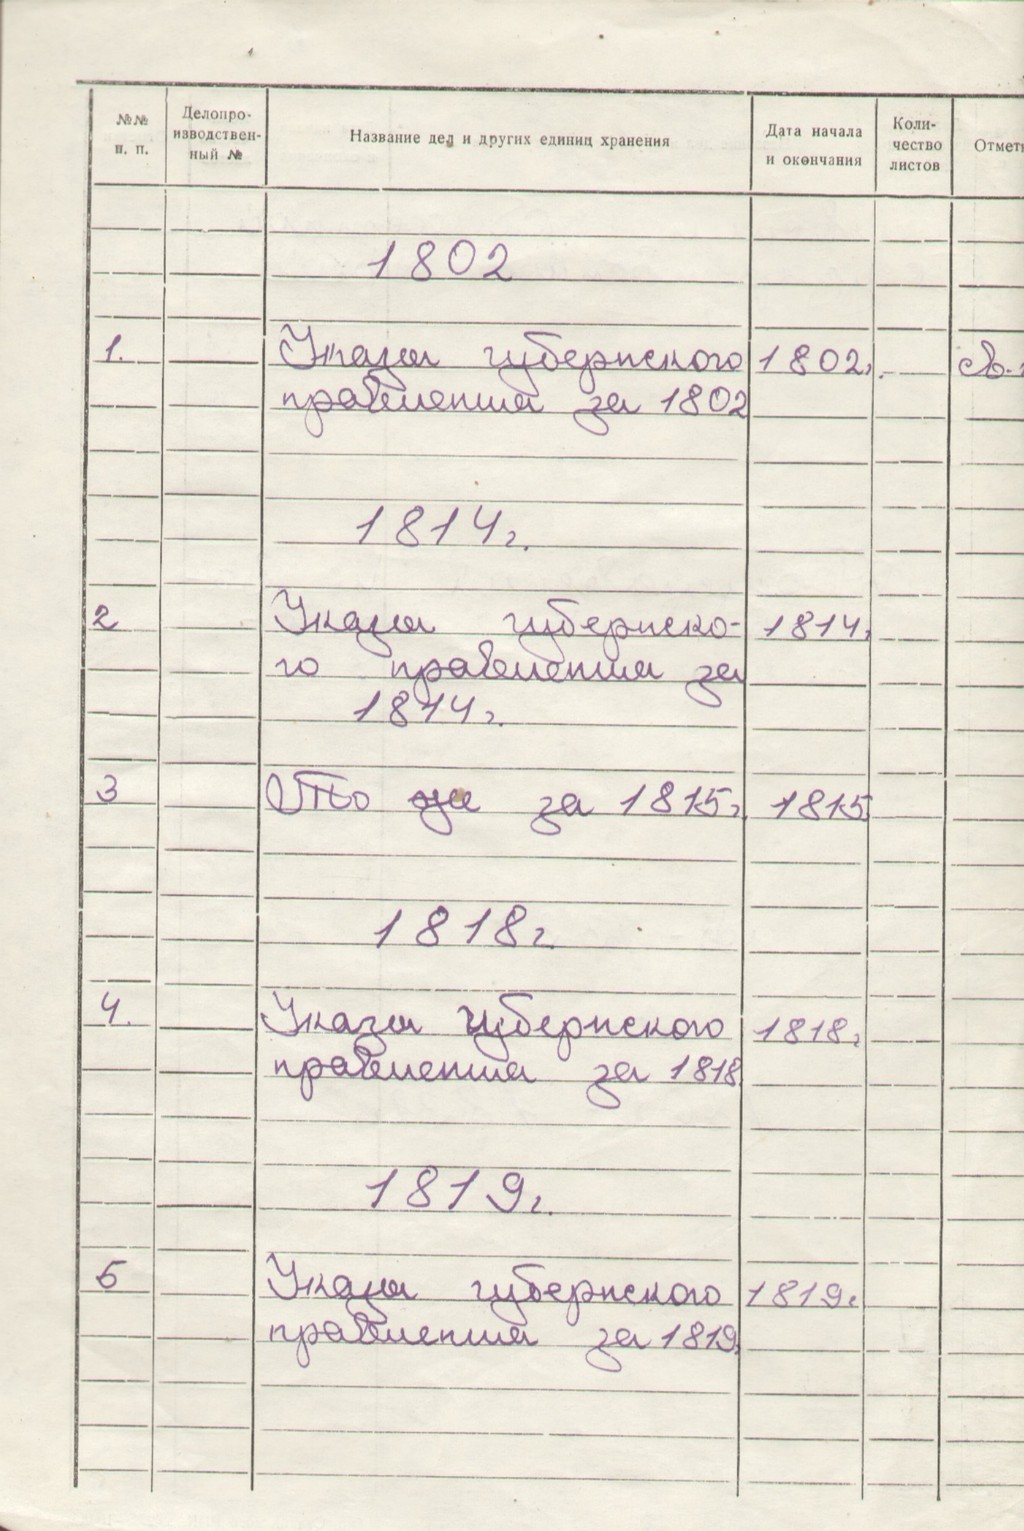 №№ п. п.
Делопро-
изводствен-
ный №
Название дел и других единиц хранения
Дата начала
и окончания
Коли-
чество
листов
Отмет
1802
1. Указы губернского 1802г.
правления за 1802
1814г.
2 Указы губернско- 1814г.
го правления за
1814г.
3 То же за 1815г. 1815
1818г.
4. Указы губернского 1818г.
правления за 1818
1819г.
5 Указы губернского 1819г.
правления за 1819